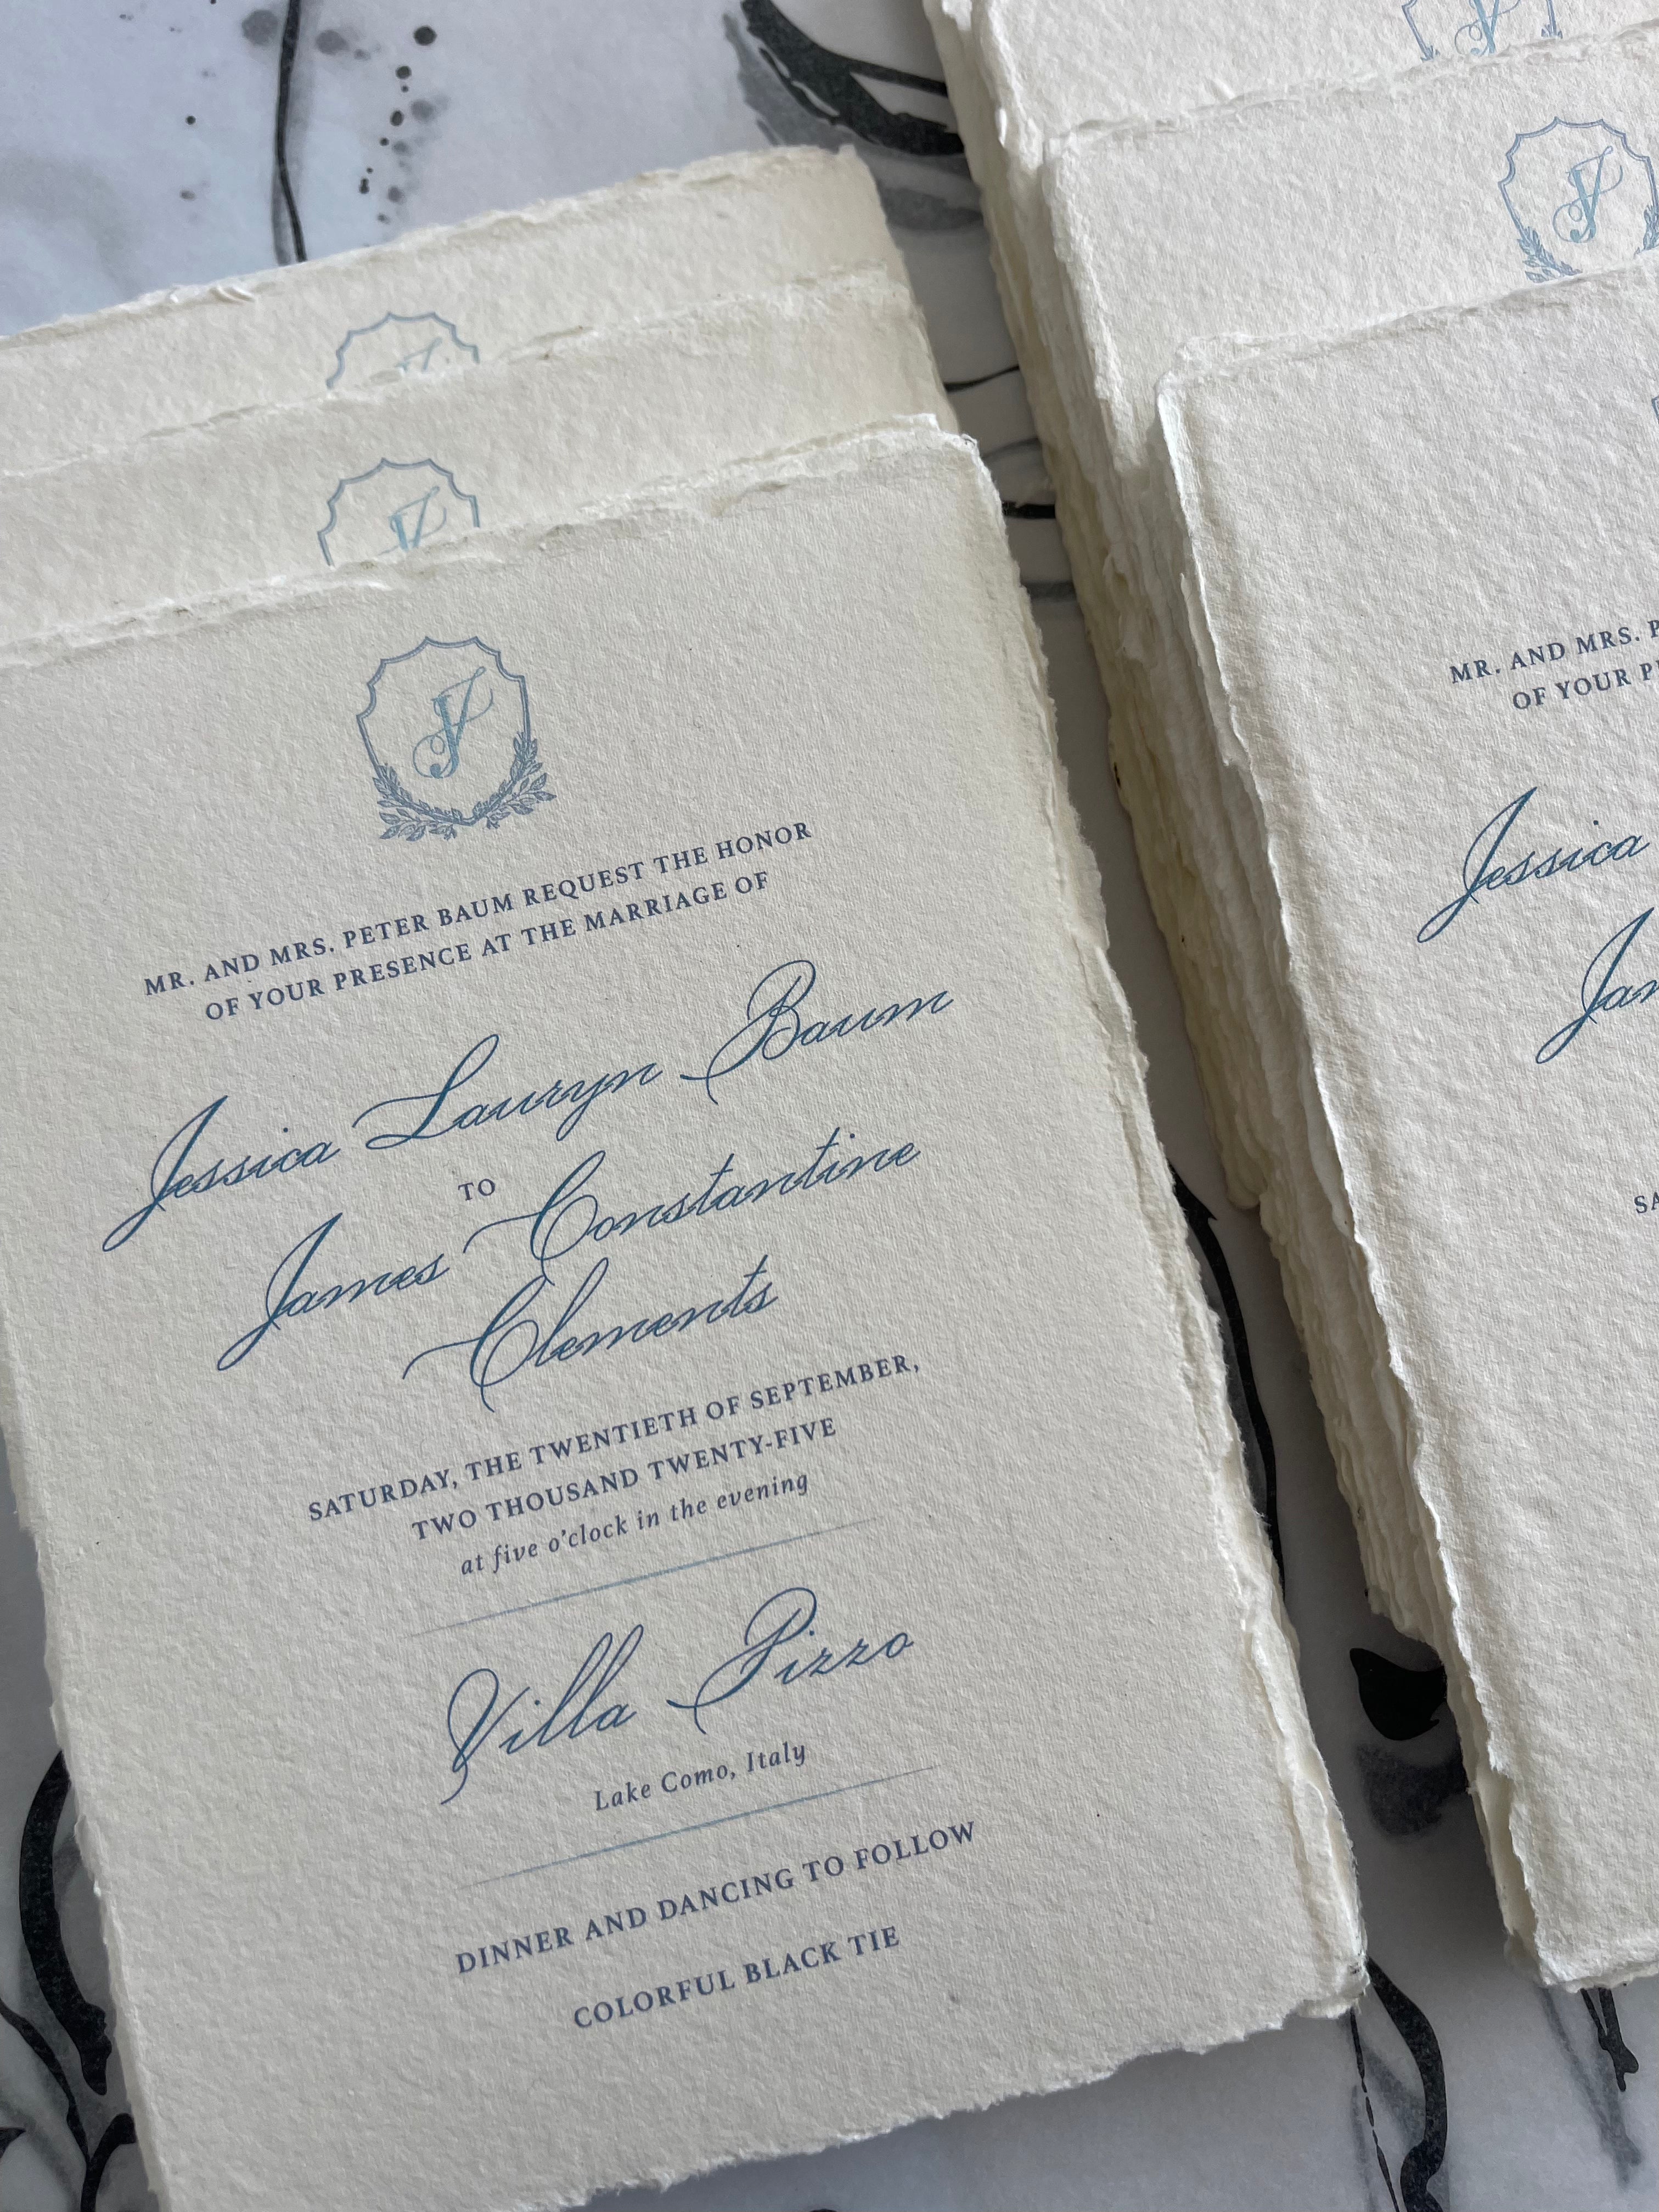 MR. AND MRS. PETER BAUM REQUEST THE HONOR
OF YOUR PRESENCE AT THE MARRIAGE OF
Jessica Lauryn Baum
TO
James Constantine
Clements
SATURDAY, THE TWENTIETH OF SEPTEMBER,
TWO THOUSAND TWENTY-FIVE
at five o'clock in the evening
Villa Pizzo
Lake Como, Italy
DINNER AND DANCING TO FOLLOW
COLORFUL BLACK TIE
MR. AND MRS.
OF YOUR
Jessica